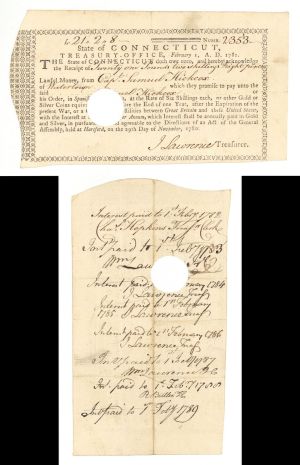 £ 21. 2. 8 NUMB. 2353.
State of CONNECTICUT,
TREASURY-OFFICE, February 1, A. D. 1781.
THE State of CONNECTICUT doth owe, and hereby acknowledge,
the Receipt of Twenty one Pounds two Shillings Eight pence
Lawful Money, from Capt. Samuel Hickcox
of Watertown which they promise to pay unto the
said Samuel Hickcox
his Order, in Spanish at the Rate of Six Shillings each, or other Gold or
Silver Coin before the End of one Year, after the Expiration of the
present War, between Great Britain and these United States,
with the Interest Annum, which Interest shall be annually paid in Gold
and Silver, agreeable to the Directions of an Act of the General
Assembly, held at Hartford, on the 29th Day of November, 1780.
J Lawrence Treasurer.
Interest paid to 1st Feby 1782
Hopkins
Int paid to 1st Feby 1783
Wm Law
Interest paid February 1784
J Lawrence Treasr
Interest paid to 1st February
1785 J Lawrence Treasr
Interest paid to 1st February 1786
J Lawrence Treasr
Int paid to 1st Feby 1787
Wm Lawrence
Int paid to 1st Feby 1788
Int paid to 1st Feby 1789